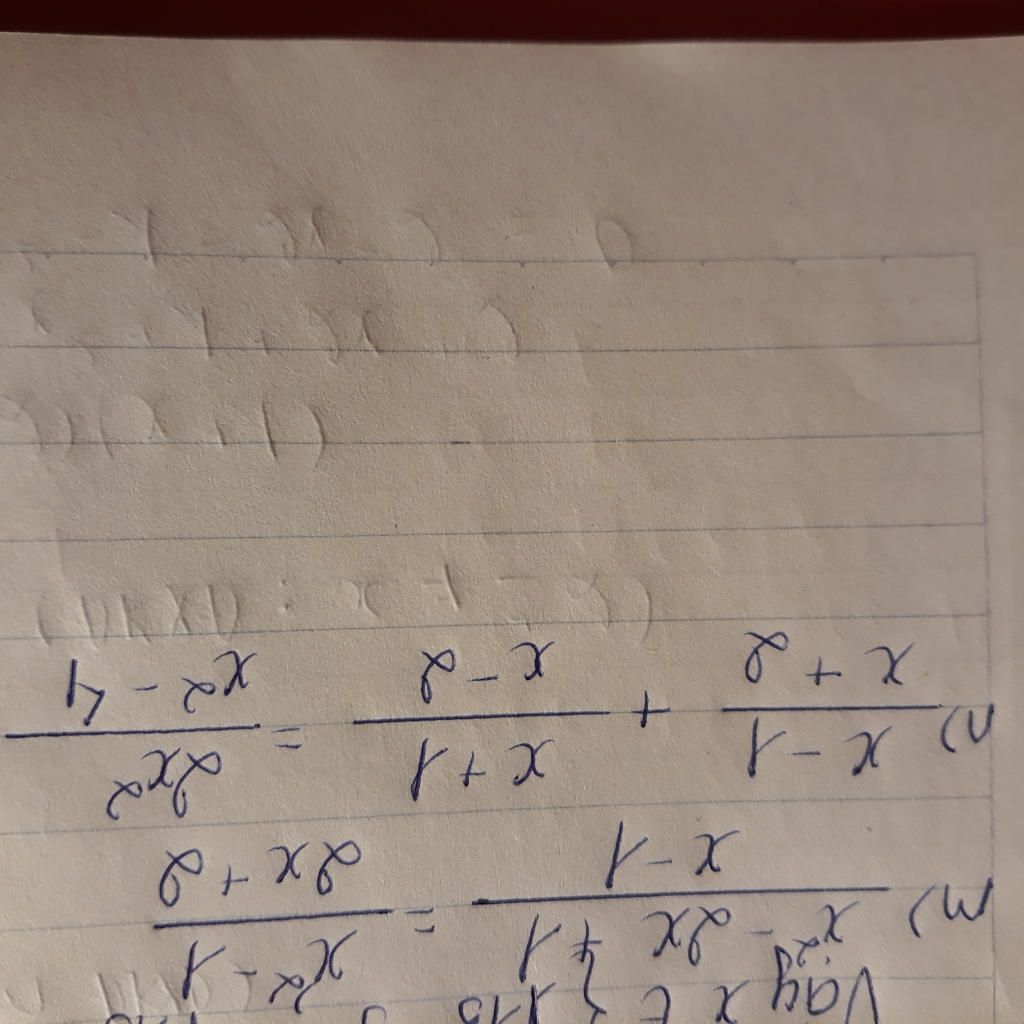 Vậy x ∈ {
m) (x² - 2x + 1)/(x - 1) = (x² - 1)/(2x + 2)
n) (x - 1)/(x + 2) + (x + 1)/(x - 2) = 2x²/(x² - 4)